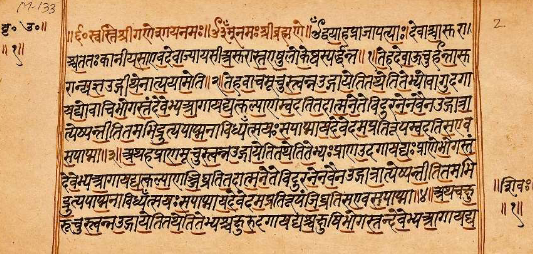 M-133
2
बृ॰ उ॰
॥१॥
॥६॰॥स्वस्ति श्रीगणेशायनमः॥ॐनमःश्रीब्रह्मणे॥ॐद्वयाहप्राजापत्याः॥देवाश्चासुरा
श्चततःकानीयसाएवदेवाज्यायसाअसुरास्तएषुलोकेष्वस्पर्द्धन्त॥१॥तेहदेवाऊचुर्हन्तासु
रान्यज्ञउद्गीथेनात्ययामेति॥२॥तेहवाचमूचुस्त्वन्नउद्गायेतितथेतितेभ्योवागुदगा
यद्योवाचिभोगस्तंदेवेभ्यआगायद्यत्कल्याणम्वदतितदात्मनेतेविदुरनेनवैनउद्गात्रा
त्येष्यन्तीतितमभिद्रुत्यपाप्मनाविध्यंत्सयःसपाप्मायदेवेदमप्रतिरूपम्वदतिसएव
सपाप्मा॥३॥अथहप्राणमूचुस्त्वन्नउद्गायेतितथेतितेभ्यःप्राणउदगायद्यःप्राणेभोगस्तं
देवेभ्यआगायद्यत्कल्याणञ्जिघ्रतितदात्मनेतेविदुरनेनवैनउद्गात्रात्येष्यन्तीतितमभि
द्रुत्यपाप्मनाविध्यंत्सयःसपाप्मायदेवेदमप्रतिरूपञ्जिघ्रतिसएवसपाप्मा॥४॥अथचक्षु
रूचुस्त्वन्नउद्गायेतितथेतितेभ्यश्चक्षुरुदगायद्यश्चक्षुषिभोगस्तन्देवेभ्यआगायद्य
॥१॥